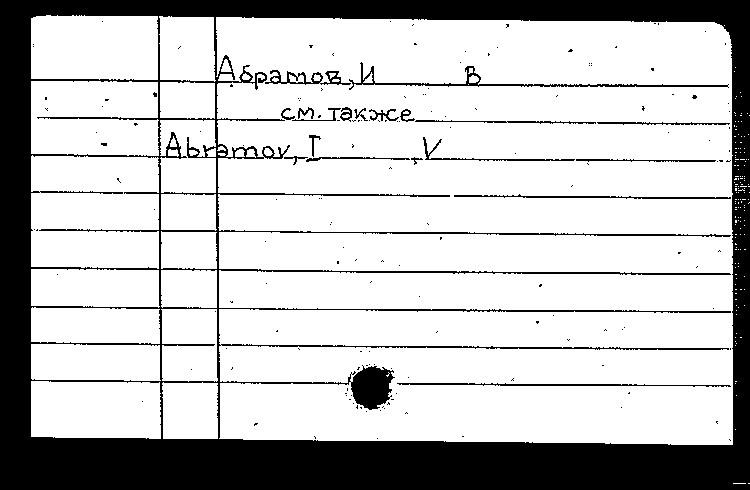 Абрамов, И В
см. также
Abramov, I , V